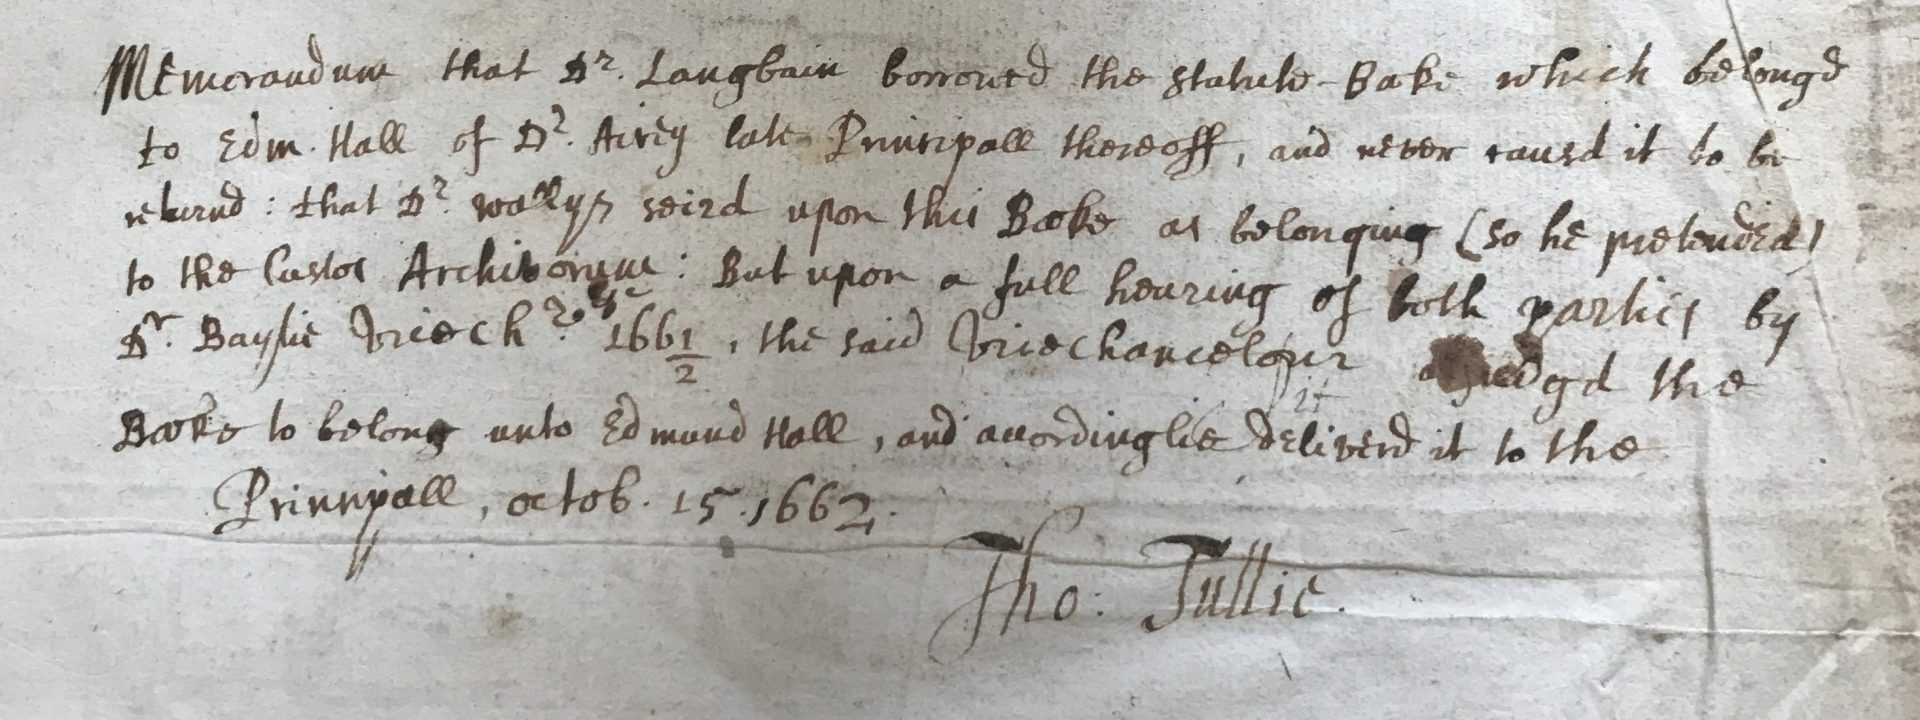 Memorandum that Dr. Langbain borrowed the Statute-Booke which belongd
to Edm. Hall of Dr. Airey late Principall thereoff, and never causd it to be
returnd: that Dr. Wallys seizd upon this Booke as belonging (so he pretended)
to the Custos Archivorum: But upon a full hearing of both parties by
Dr. Baylie Vicech. 1661/2, the said Vicechancelour the
Booke to belong unto Edmund Hall, and accordinglie deliverd it to the
Principall, octob. 15. 1662.
Tho: Tullie.